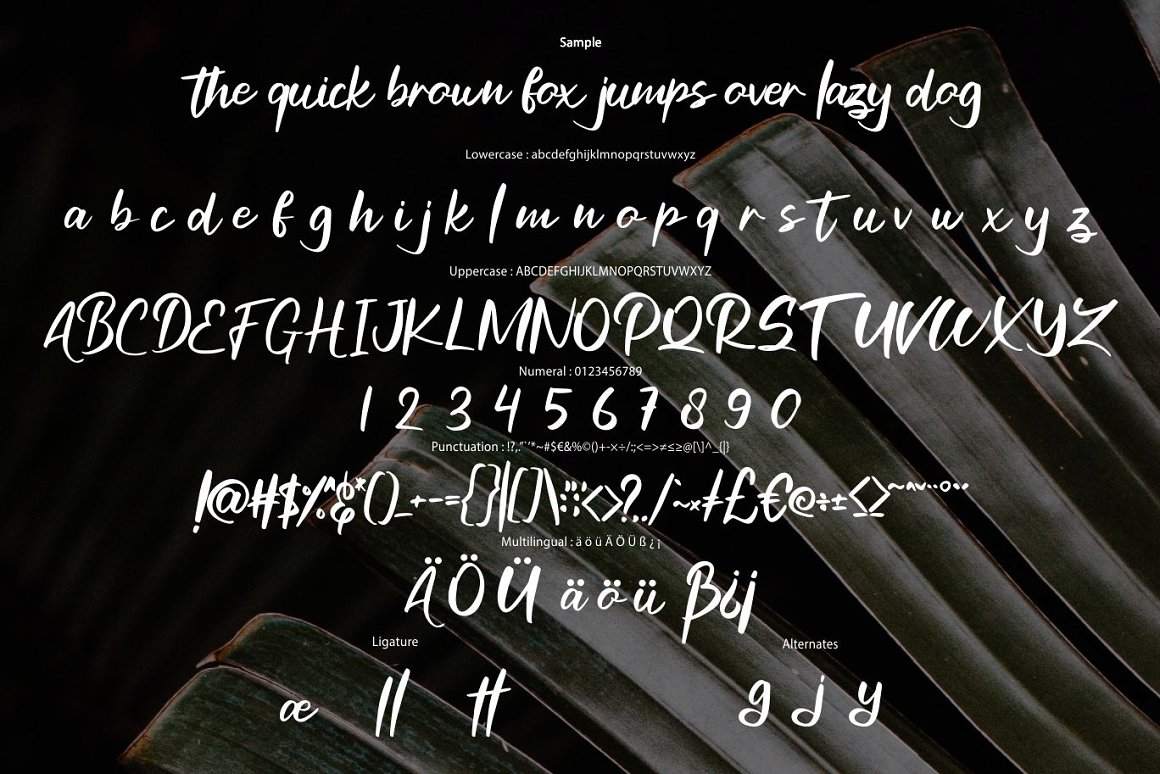 Sample
the quick brown fox jumps over lazy dog
Lowercase : abcdefghijklmnopqrstuvwxyz
a b c d e f g h i j k l m n o p q r s t u v w x y z
Uppercase : ABCDEFGHIJKLMNOPQRSTUVWXYZ
ABCDEFGHIJKLMNOPQRSTUVWXYZ
Numeral : 0123456789
1 2 3 4 5 6 7 8 9 0
Punctuation : !?,."`'*~#$€&%©()+-×÷/:;<=>≠≤≥@[\]^_{|}
!@#$%^&*()_+-={}|[]\:";'<>?,./`~×≠£€©÷±≤≥~^˘¨·°¨
Multilingual : ä ö ü Ä Ö Ü ß ¿ ¡
ÄÖÜ äöü ß¿¡
Ligature Alternates
æ ll tt g j y